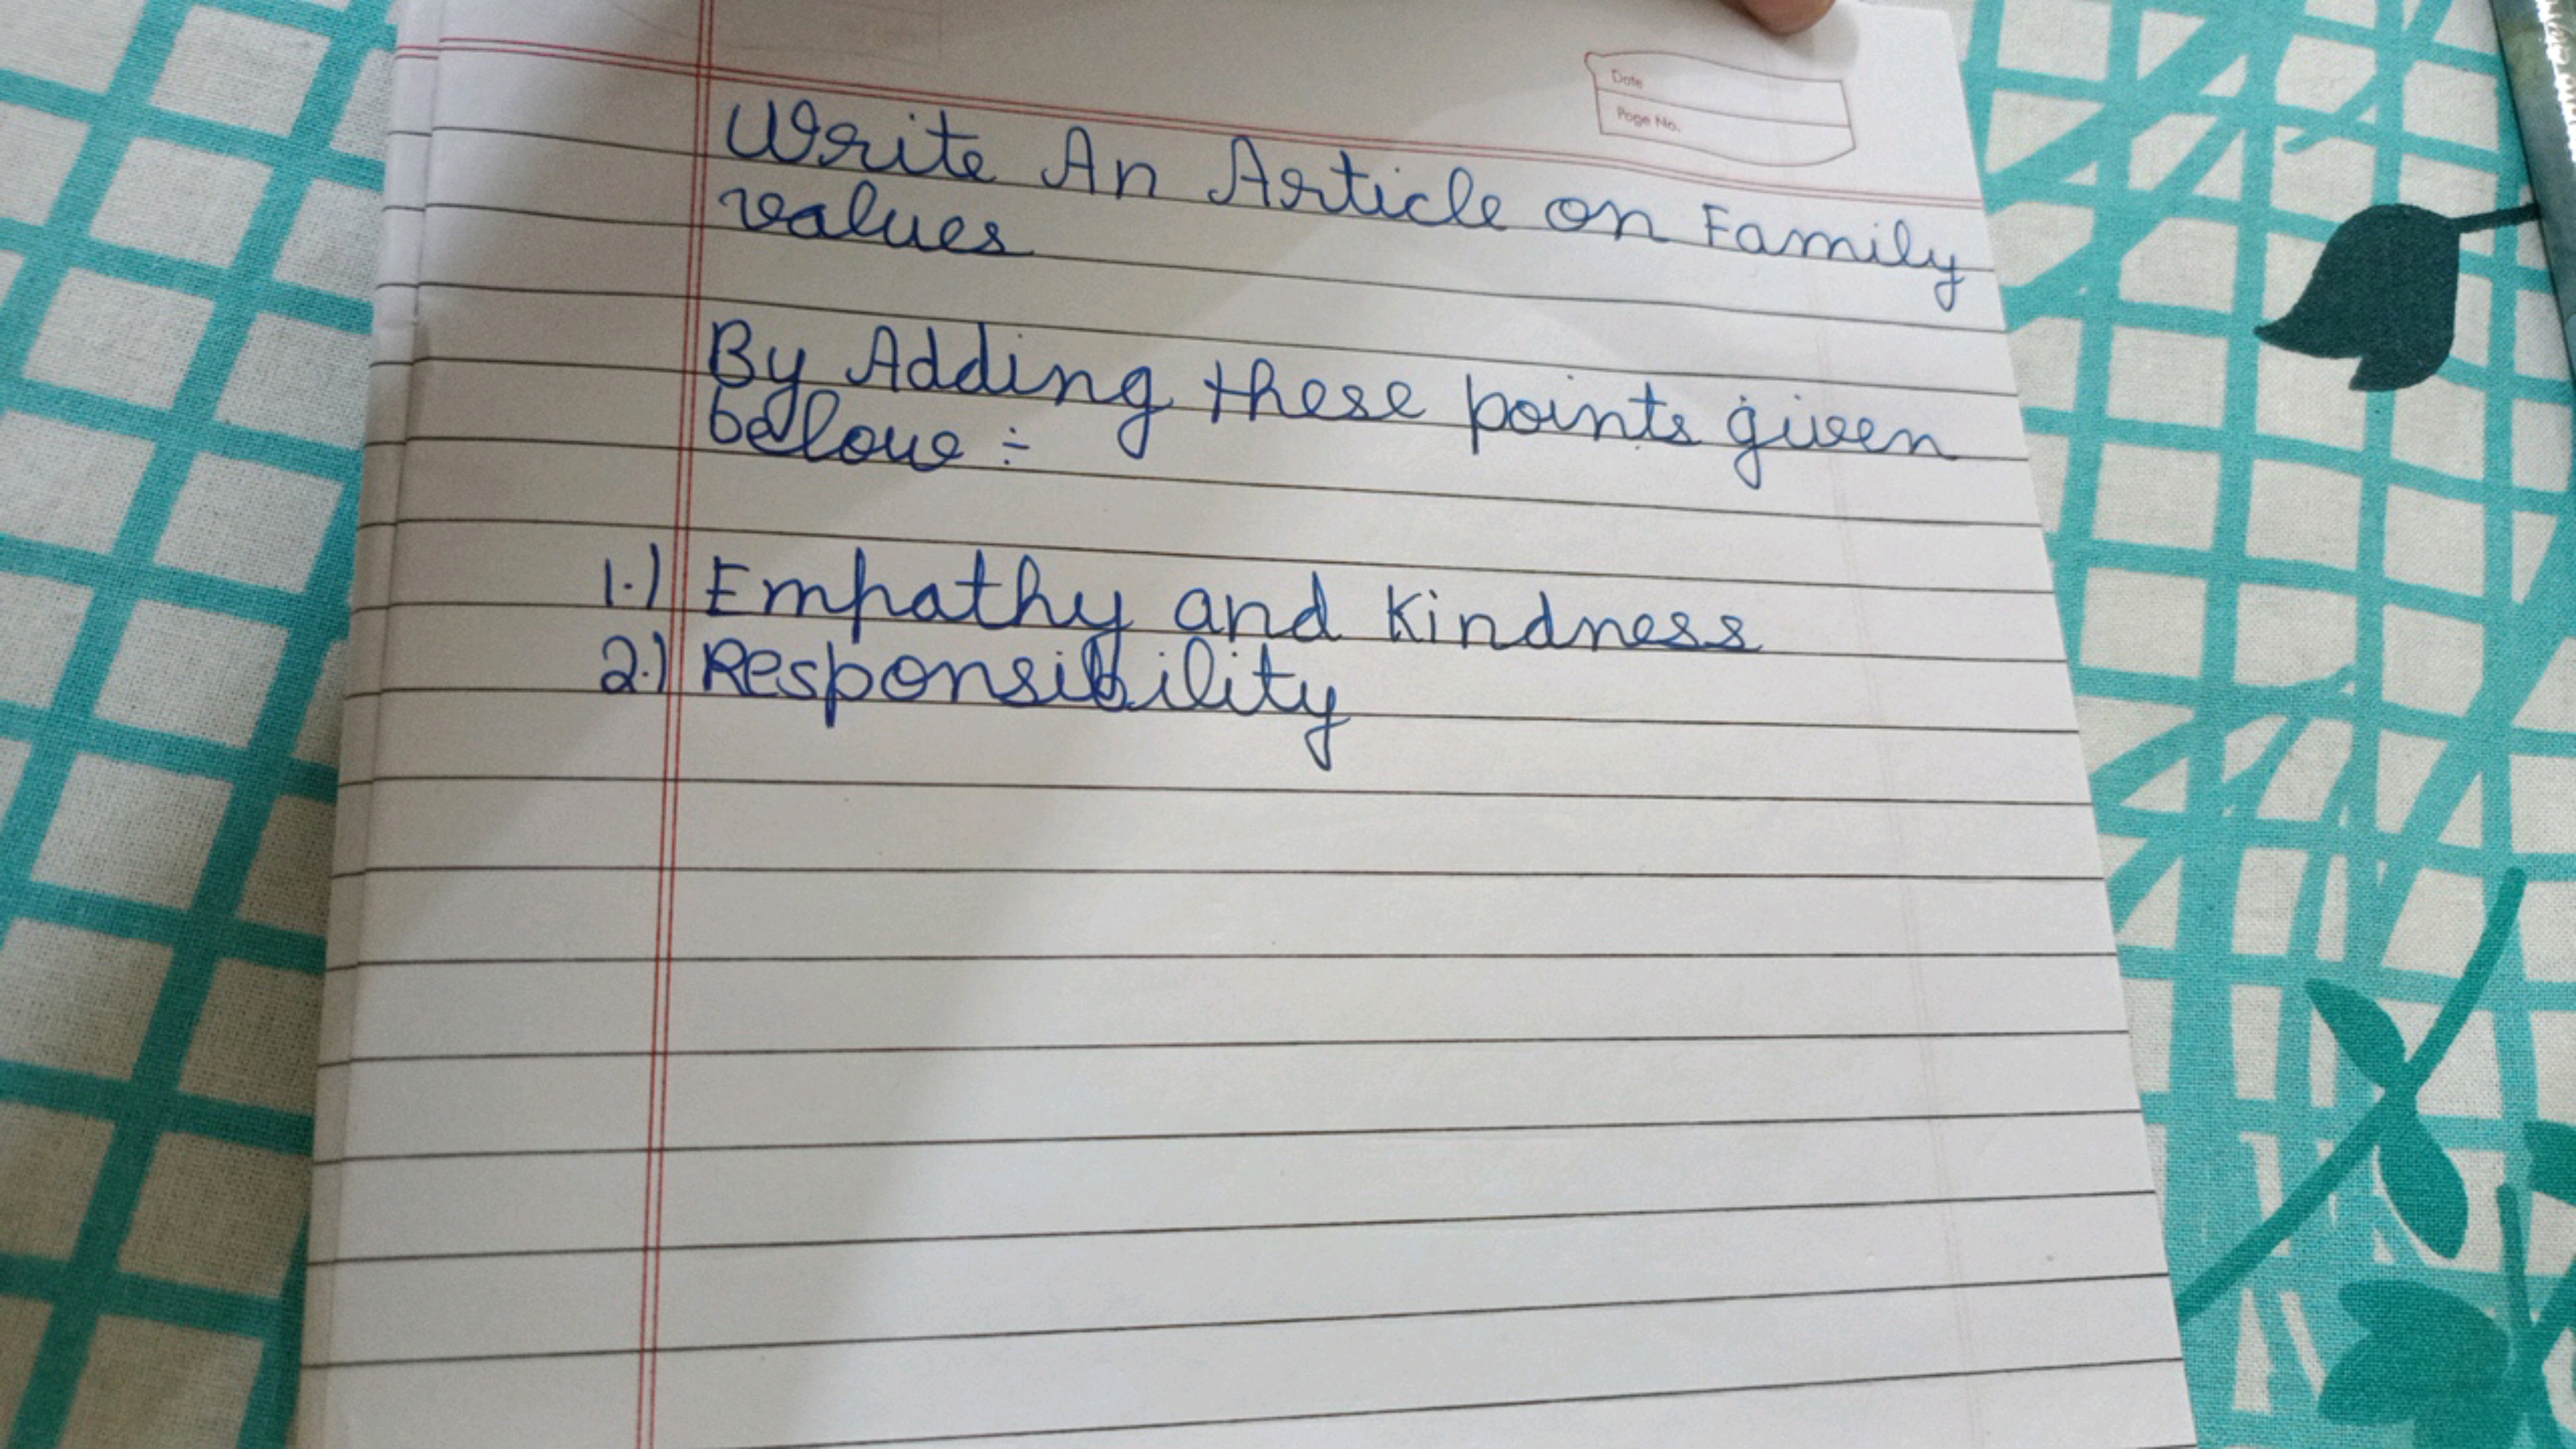 Date
Page No.
Write An Article on Family
values
By Adding these points given
below :-
1.) Empathy and Kindness
2.) Responsibility